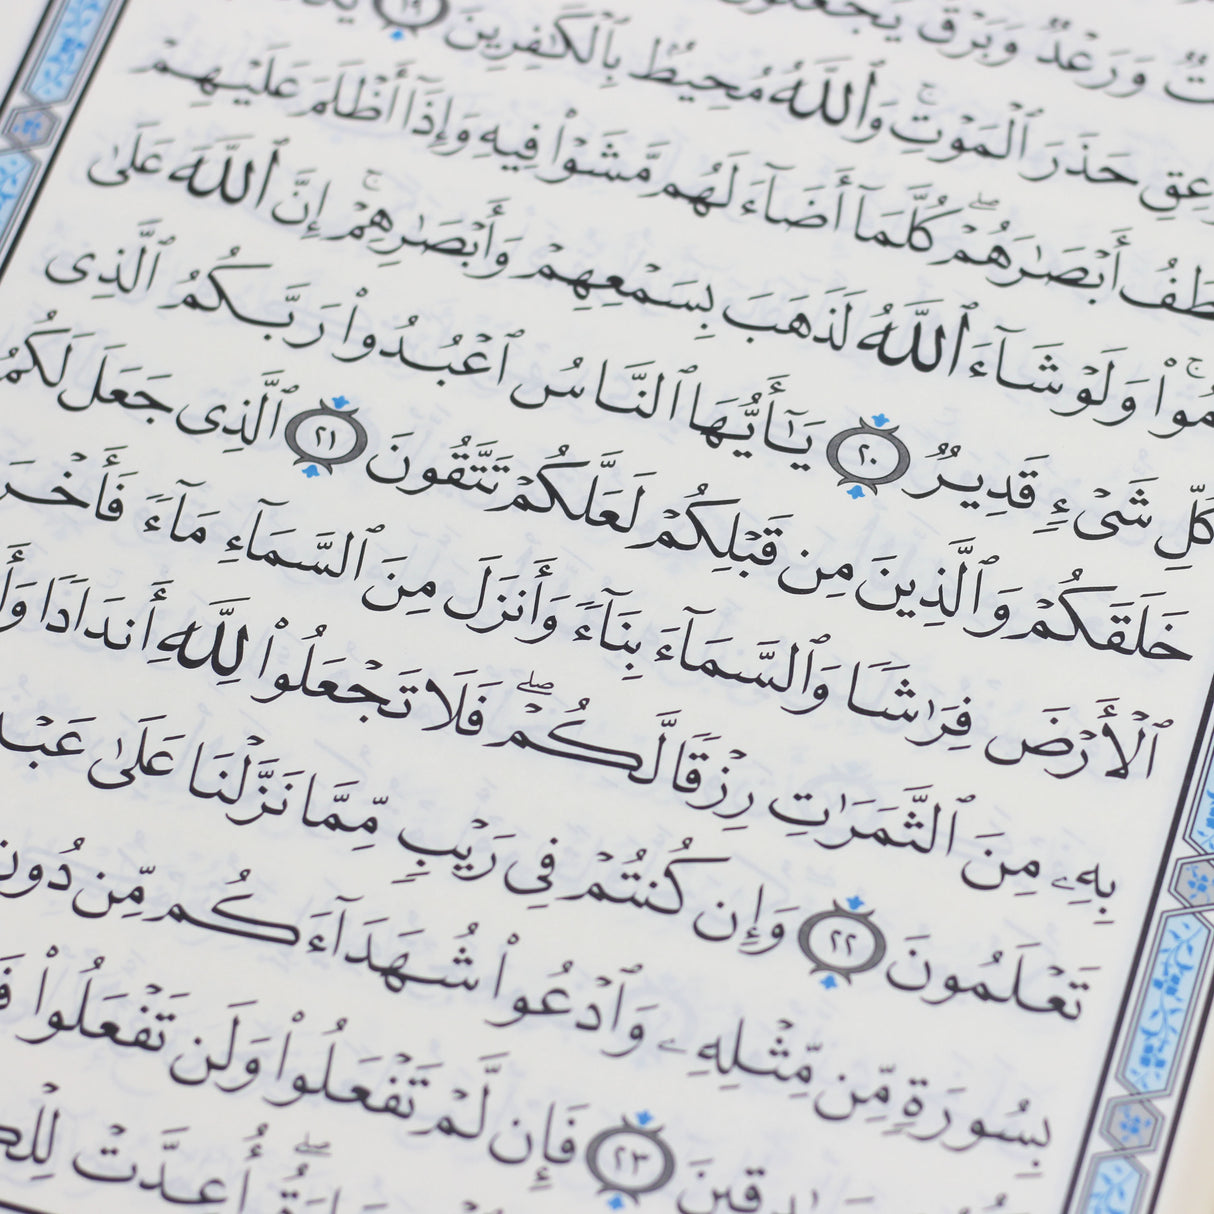 وَرَعْدٌ وَبَرْقٌ يَجْعَلُونَ
حَذَرَ ٱلْمَوْتِ ۚ وَٱللَّهُ مُحِيطٌۢ بِٱلْكَـٰفِرِينَ ١٩
أَبْصَـٰرَهُمْ ۖ كُلَّمَآ أَضَآءَ لَهُم مَّشَوْا۟ فِيهِ وَإِذَآ أَظْلَمَ عَلَيْهِمْ
وَلَوْ شَآءَ ٱللَّهُ لَذَهَبَ بِسَمْعِهِمْ وَأَبْصَـٰرِهِمْ ۚ إِنَّ ٱللَّهَ عَلَىٰ
كُلِّ شَىْءٍ قَدِيرٌ ٢٠ يَـٰٓأَيُّهَا ٱلنَّاسُ ٱعْبُدُوا۟ رَبَّكُمُ ٱلَّذِى
خَلَقَكُمْ وَٱلَّذِينَ مِن قَبْلِكُمْ لَعَلَّكُمْ تَتَّقُونَ ٢١ ٱلَّذِى جَعَلَ لَكُمُ
ٱلْأَرْضَ فِرَٰشًا وَٱلسَّمَآءَ بِنَآءً وَأَنزَلَ مِنَ ٱلسَّمَآءِ مَآءً فَأَخْرَ
بِهِۦ مِنَ ٱلثَّمَرَٰتِ رِزْقًا لَّكُمْ ۖ فَلَا تَجْعَلُوا۟ لِلَّهِ أَندَادًا وَأَ
تَعْلَمُونَ ٢٢ وَإِن كُنتُمْ فِى رَيْبٍ مِّمَّا نَزَّلْنَا عَلَىٰ عَبْ
بِسُورَةٍ مِّن مِّثْلِهِۦ وَٱدْعُوا۟ شُهَدَآءَكُم مِّن دُونِ
دِقِينَ ٢٣ فَإِن لَّمْ تَفْعَلُوا۟ وَلَن تَفْعَلُوا۟ فَ
أُعِدَّتْ لِلْكَ